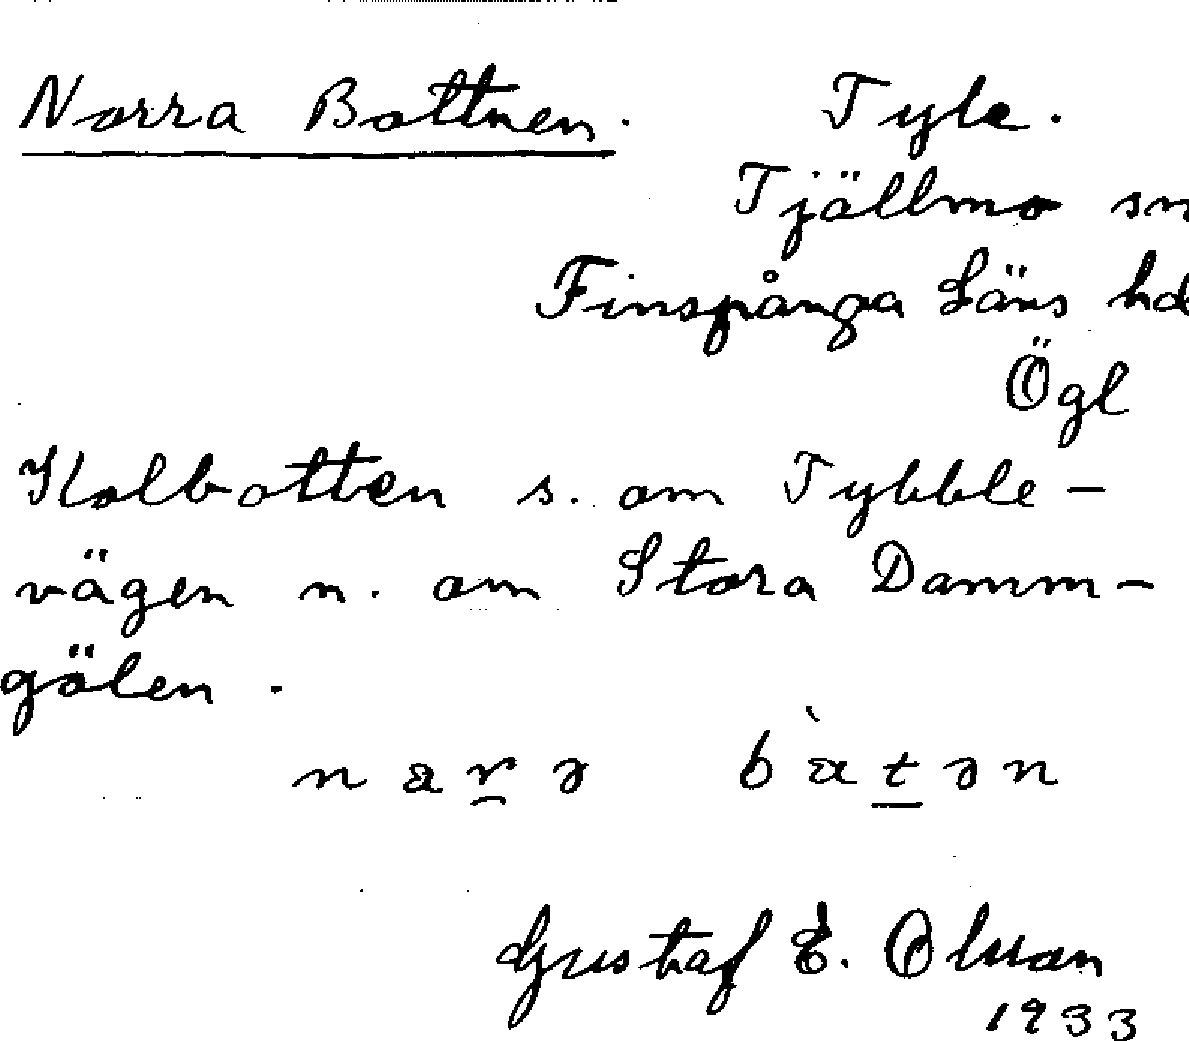 Norra Bottnen. Tyle.
Tjällmo sn
Finspånga Läns hd
Ögl
Kolbotten s. om Tybble-
vägen n. om Stora Damm-
gölen.
narə bàtən
Gustaf E. Olsson
1933